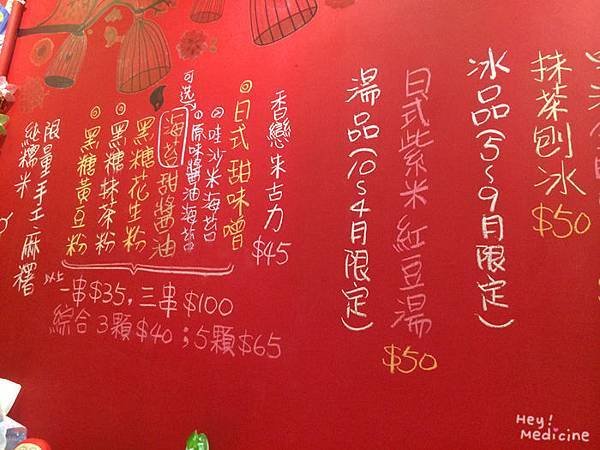 抹茶刨冰
$50
冰品(5~9月限定)
日式紫米紅豆湯
$50
湯品(10~4月限定)
香戀朱古力
$45
日式甜味噌
海苔甜醬油
可選
①原味醬油海苔
②哇沙米海苔
黑糖花生粉
黑糖抹茶粉
黑糖黃豆粉
一串$35,三串$100
綜合3顆$40;5顆$65
限量手工麻糬
純糯米
Hey!
Medicine